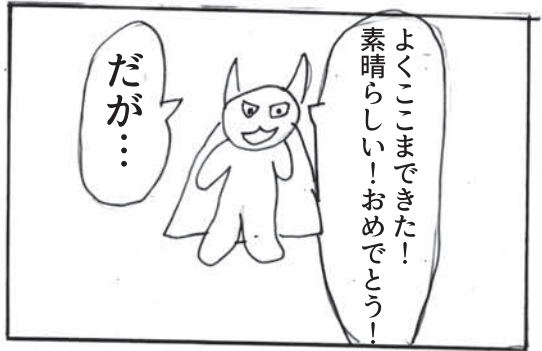 よくここまできた！
素晴らしい！おめでとう！
だが…